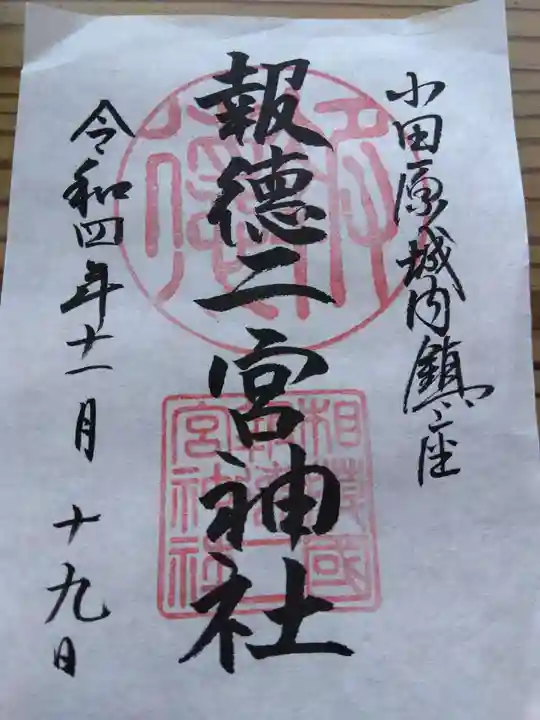 小田原城内鎮座
報徳二宮神社
相模國
報徳二
宮神社
令和四年十一月 十九日